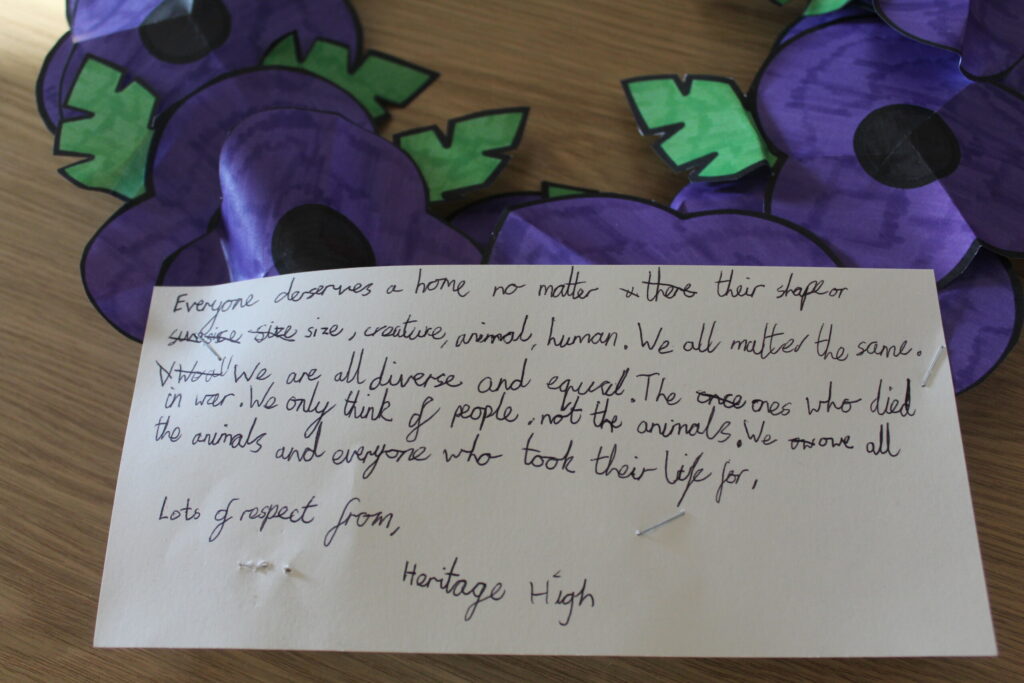 Everyone derserves a home no matter there their shape or
sunsise size size, creature, animal, human. We all matter the same.
We are all diverse and equal. The once ones who died
in war. We only think of people, not the animals. We owe all
the animals and everyone who took their life for,
Lots of respect from,
Heritage High